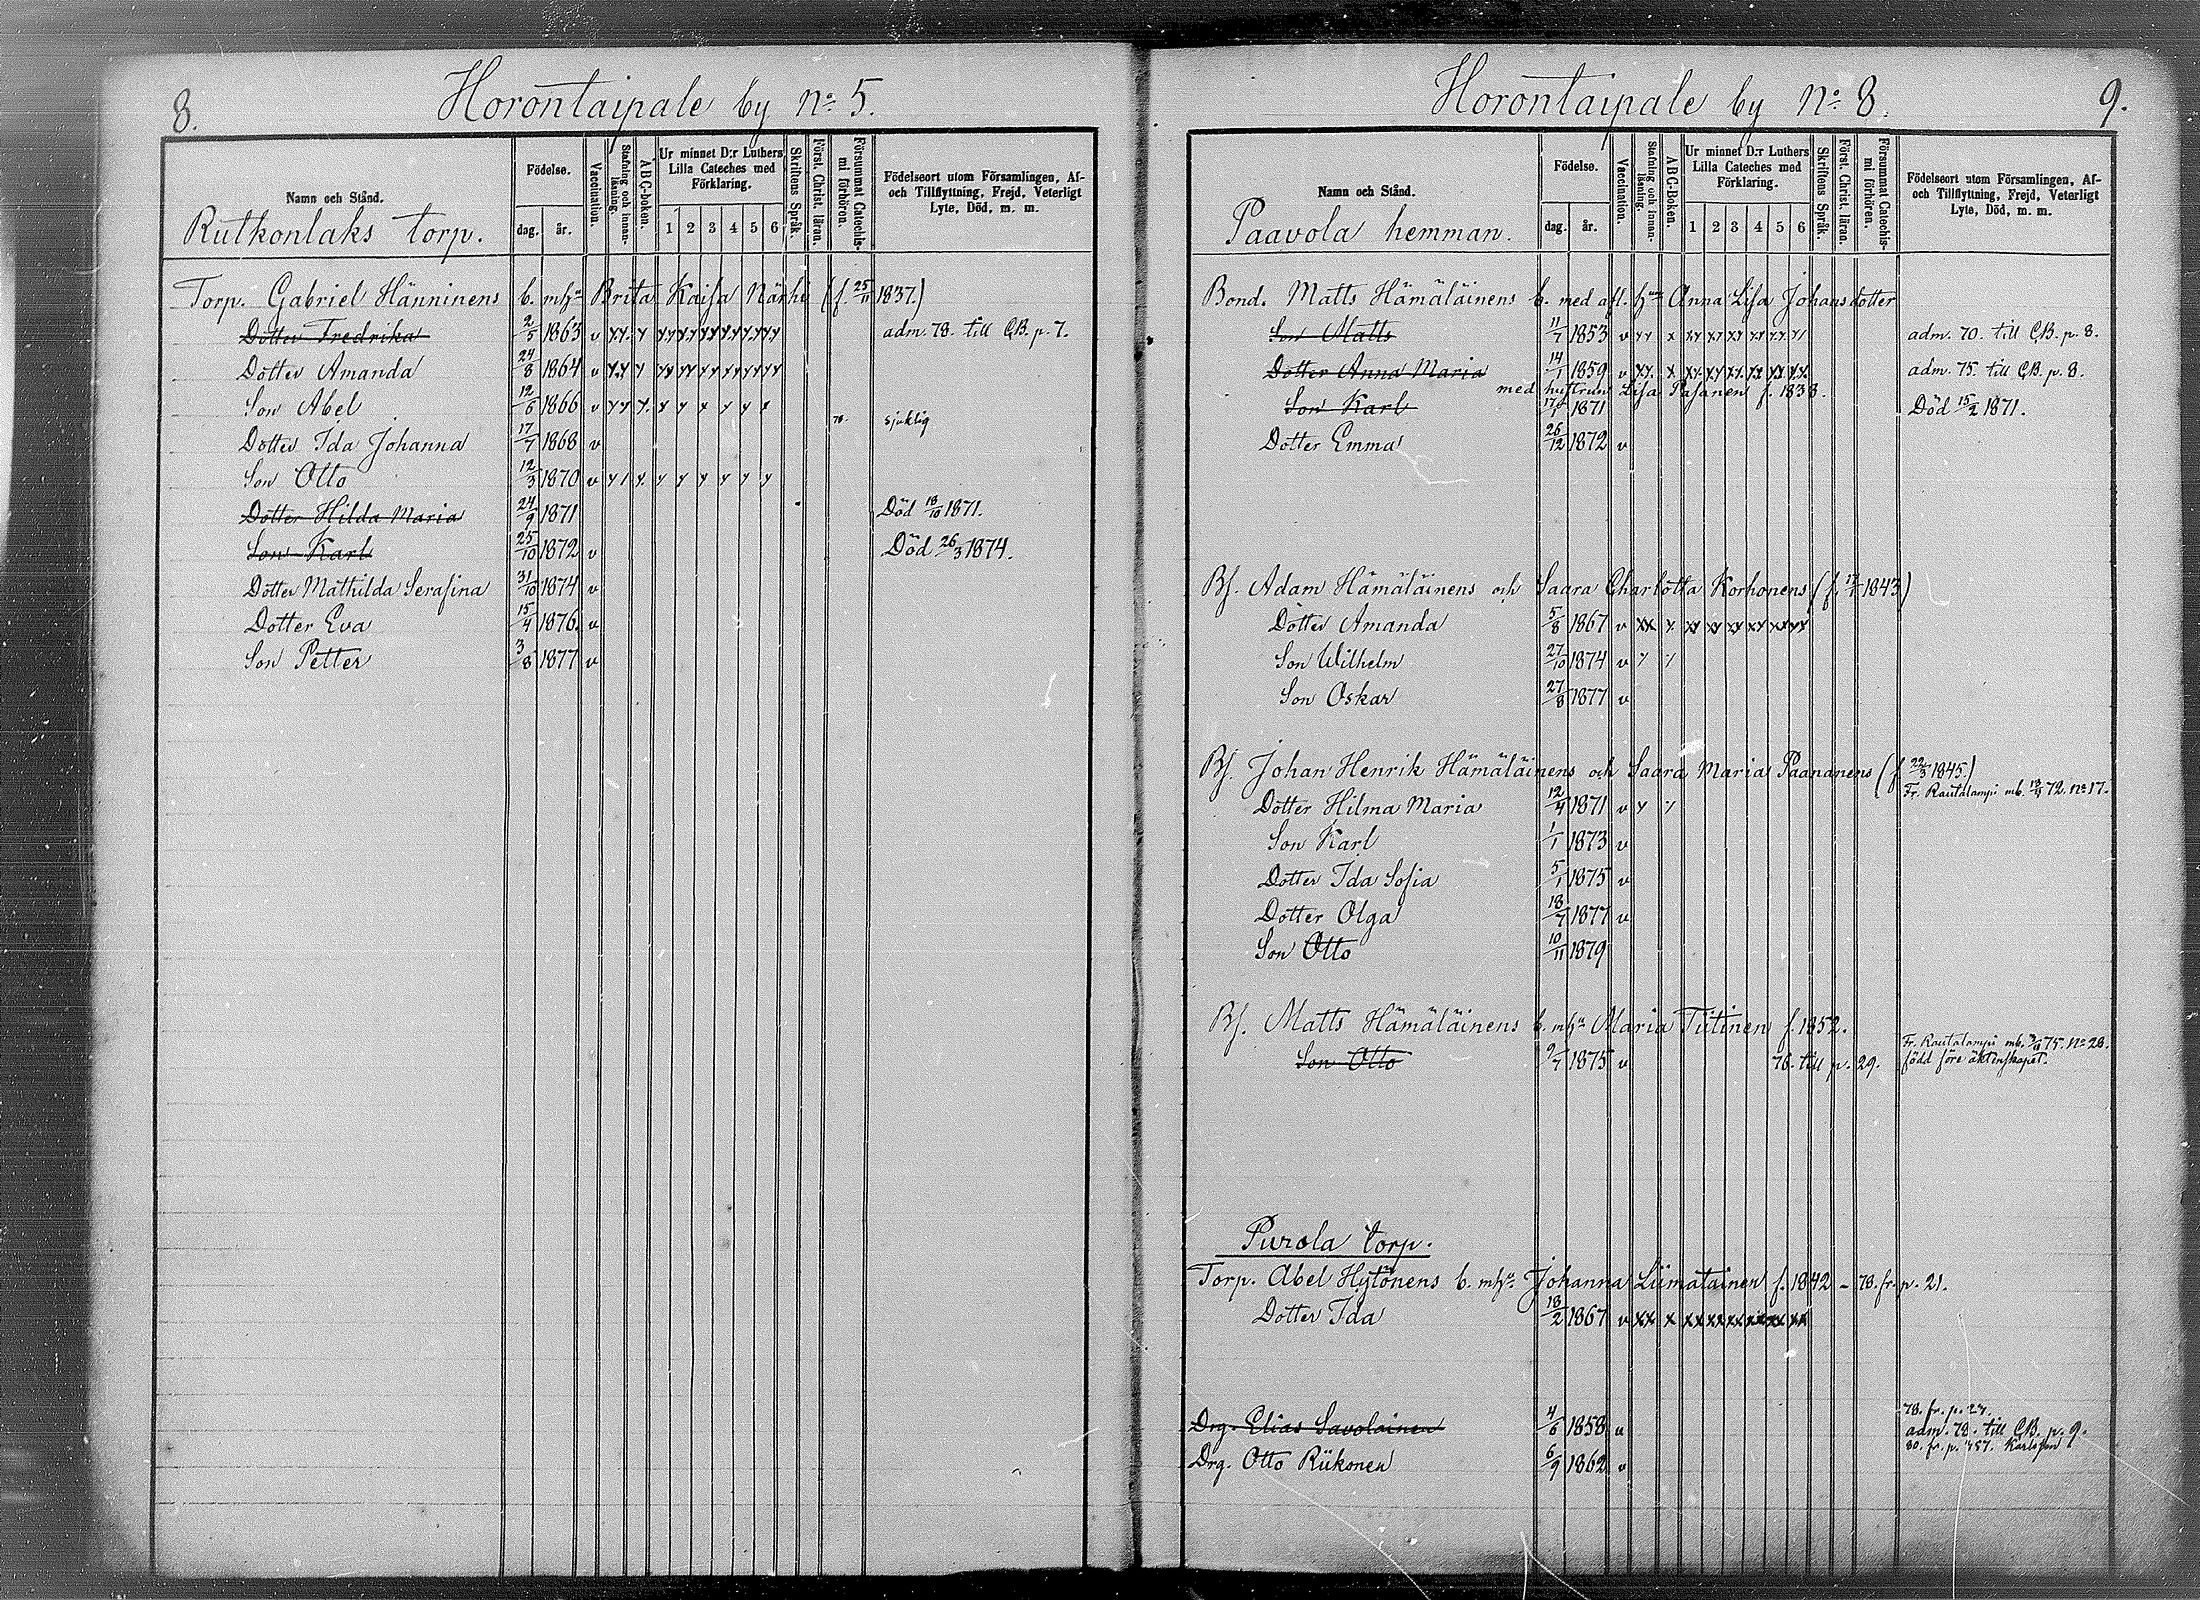 8.
Horontaipale by No 5.
Namn och Stånd.
Rutkonlaks torp.
Födelse.
dag. år.
Vaccination.
Stafning och innanläsning.
A B C-boken.
Ur minnet D:r Luthers Lilla Cateches med Förklaring.
1 2 3 4 5 6
Skriftens Språk.
Först. Christ. läran.
Försummat Catechismi förhören.
Födelseort utom Församlingen, Af- och Tillflyttning, Frejd, Veterligt Lyte, Död, m. m.
Torp. Gabriel Hänninens b. mhu Brita Kaisa Närhi (f. 25/11 1837.)
Dotter Fredrika 2/5 1863 v adm. 78. till CB. p. 7.
Dotter Amanda 24/8 1864 v
Son Abel 12/6 1866 v
Dotter Ida Johanna 17/7 1868 v 78. sjuklig
Son Otto 12/3 1870 v
Dotter Hilda Maria 24/9 1871 Död 18/10 1871.
Son Karl 25/10 1872 v Död 26/3 1874.
Dotter Mathilda Serafina 31/10 1874 v
Dotter Eva 15/4 1876. v
Son Petter 3/8 1877 v
9.
Horontaipale by No 8.
Namn och Stånd.
Paavola hemman.
Födelse.
dag. år.
Vaccination.
Stafning och innanläsning.
A B C-boken.
Ur minnet D:r Luthers Lilla Cateches med Förklaring.
1 2 3 4 5 6
Skriftens Språk.
Först. Christ. läran.
Försummat Catechismi förhören.
Födelseort utom Församlingen, Af- och Tillflyttning, Frejd, Veterligt Lyte, Död, m. m.
Bond. Matts Hämäläinens b. med afl. hu Anna Lisa Johansdotter
Son Matts 11/7 1853 v adm. 70. till CB. p. 8.
Dotter Anna Maria 14/1 1859 v adm. 75. till CB. p. 8.
med hustrun Lisa Pasanen f. 1838.
Son Karl 1871 Död 15/2 1871.
Dotter Emma 26/12 1872 v
Bf. Adam Hämäläinens och Saara Charlotta Korhonens (f. 1843)
Dotter Amanda 5/8 1867 v
Son Wilhelm 27/10 1874 v
Son Oskar 27/8 1877 v
Bf. Johan Henrik Hämäläinens och Saara Maria Paananens (f. 22/3 1845.)
Fr. Rautalampi mb. 72. No 17.
Dotter Hilma Maria 12/4 1871 v
Son Karl 1/1 1873 v
Dotter Ida Sofia 5/1 1875 v
Dotter Olga 18/7 1877 v
Son Otto 10/11 1879
Bf. Matts Hämäläinens b. mhu Maria Tiitinen f. 1852.
Fr. Rautalampi mb. 75. No 28.
Son Otto 9/7 1875 v 76. till p. 29. född före äktenskapet.
Purola torp.
Torp. Abel Hytönens b. mhu Johanna Liimatainen f. 1842 – 78. fr. p. 21.
Dotter Ida 18/2 1867 v
78. fr. p. 27.
Drg. Elias Savolainen 4/6 1858 v adm. 78. till CB. p. 9.
80. fr. p. 457.
Drg. Otto Riikonen 6/9 1862 v